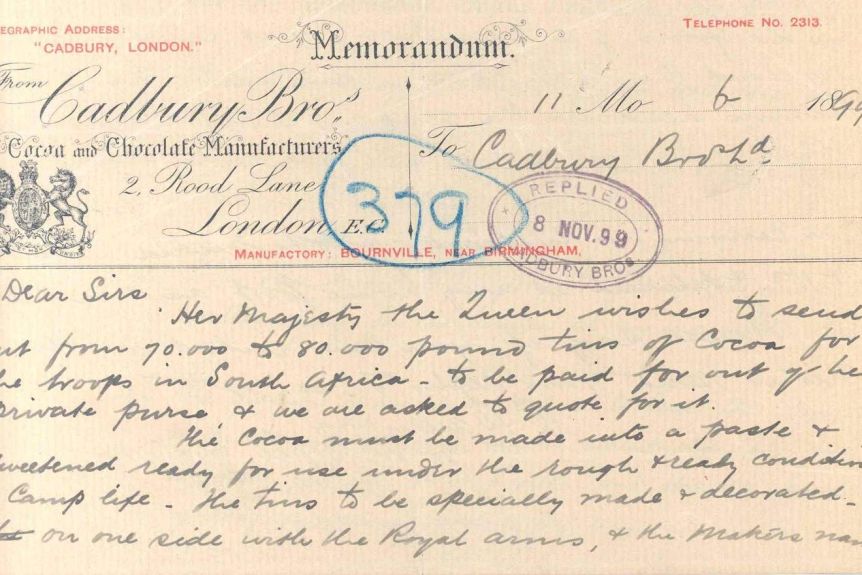 EGRAPHIC ADDRESS:
"CADBURY, LONDON."
Memorandum.
TELEPHONE NO. 2313.
From
Cadbury Bros.
Cocoa and Chocolate Manufacturers
2, Rood Lane
London, E.C.
MANUFACTORY: BOURNVILLE, NEAR BIRMINGHAM.
11 Mo 6 1899
To Cadbury Bros Ld
379
REPLIED
8 NOV. 99
DBURY BROS
Dear Sirs
Her Majesty the Queen wishes to send
ut from 70.000 to 80.000 pound tins of Cocoa for
he troops in South Africa - to be paid for out of he
private purse & we are asked to quote for it.
The Cocoa must be made into a paste &
sweetened ready for use under the rough & ready condition
Camp life - The tins to be specially made & decorated -
on one side with the Royal arms, & the makers nam